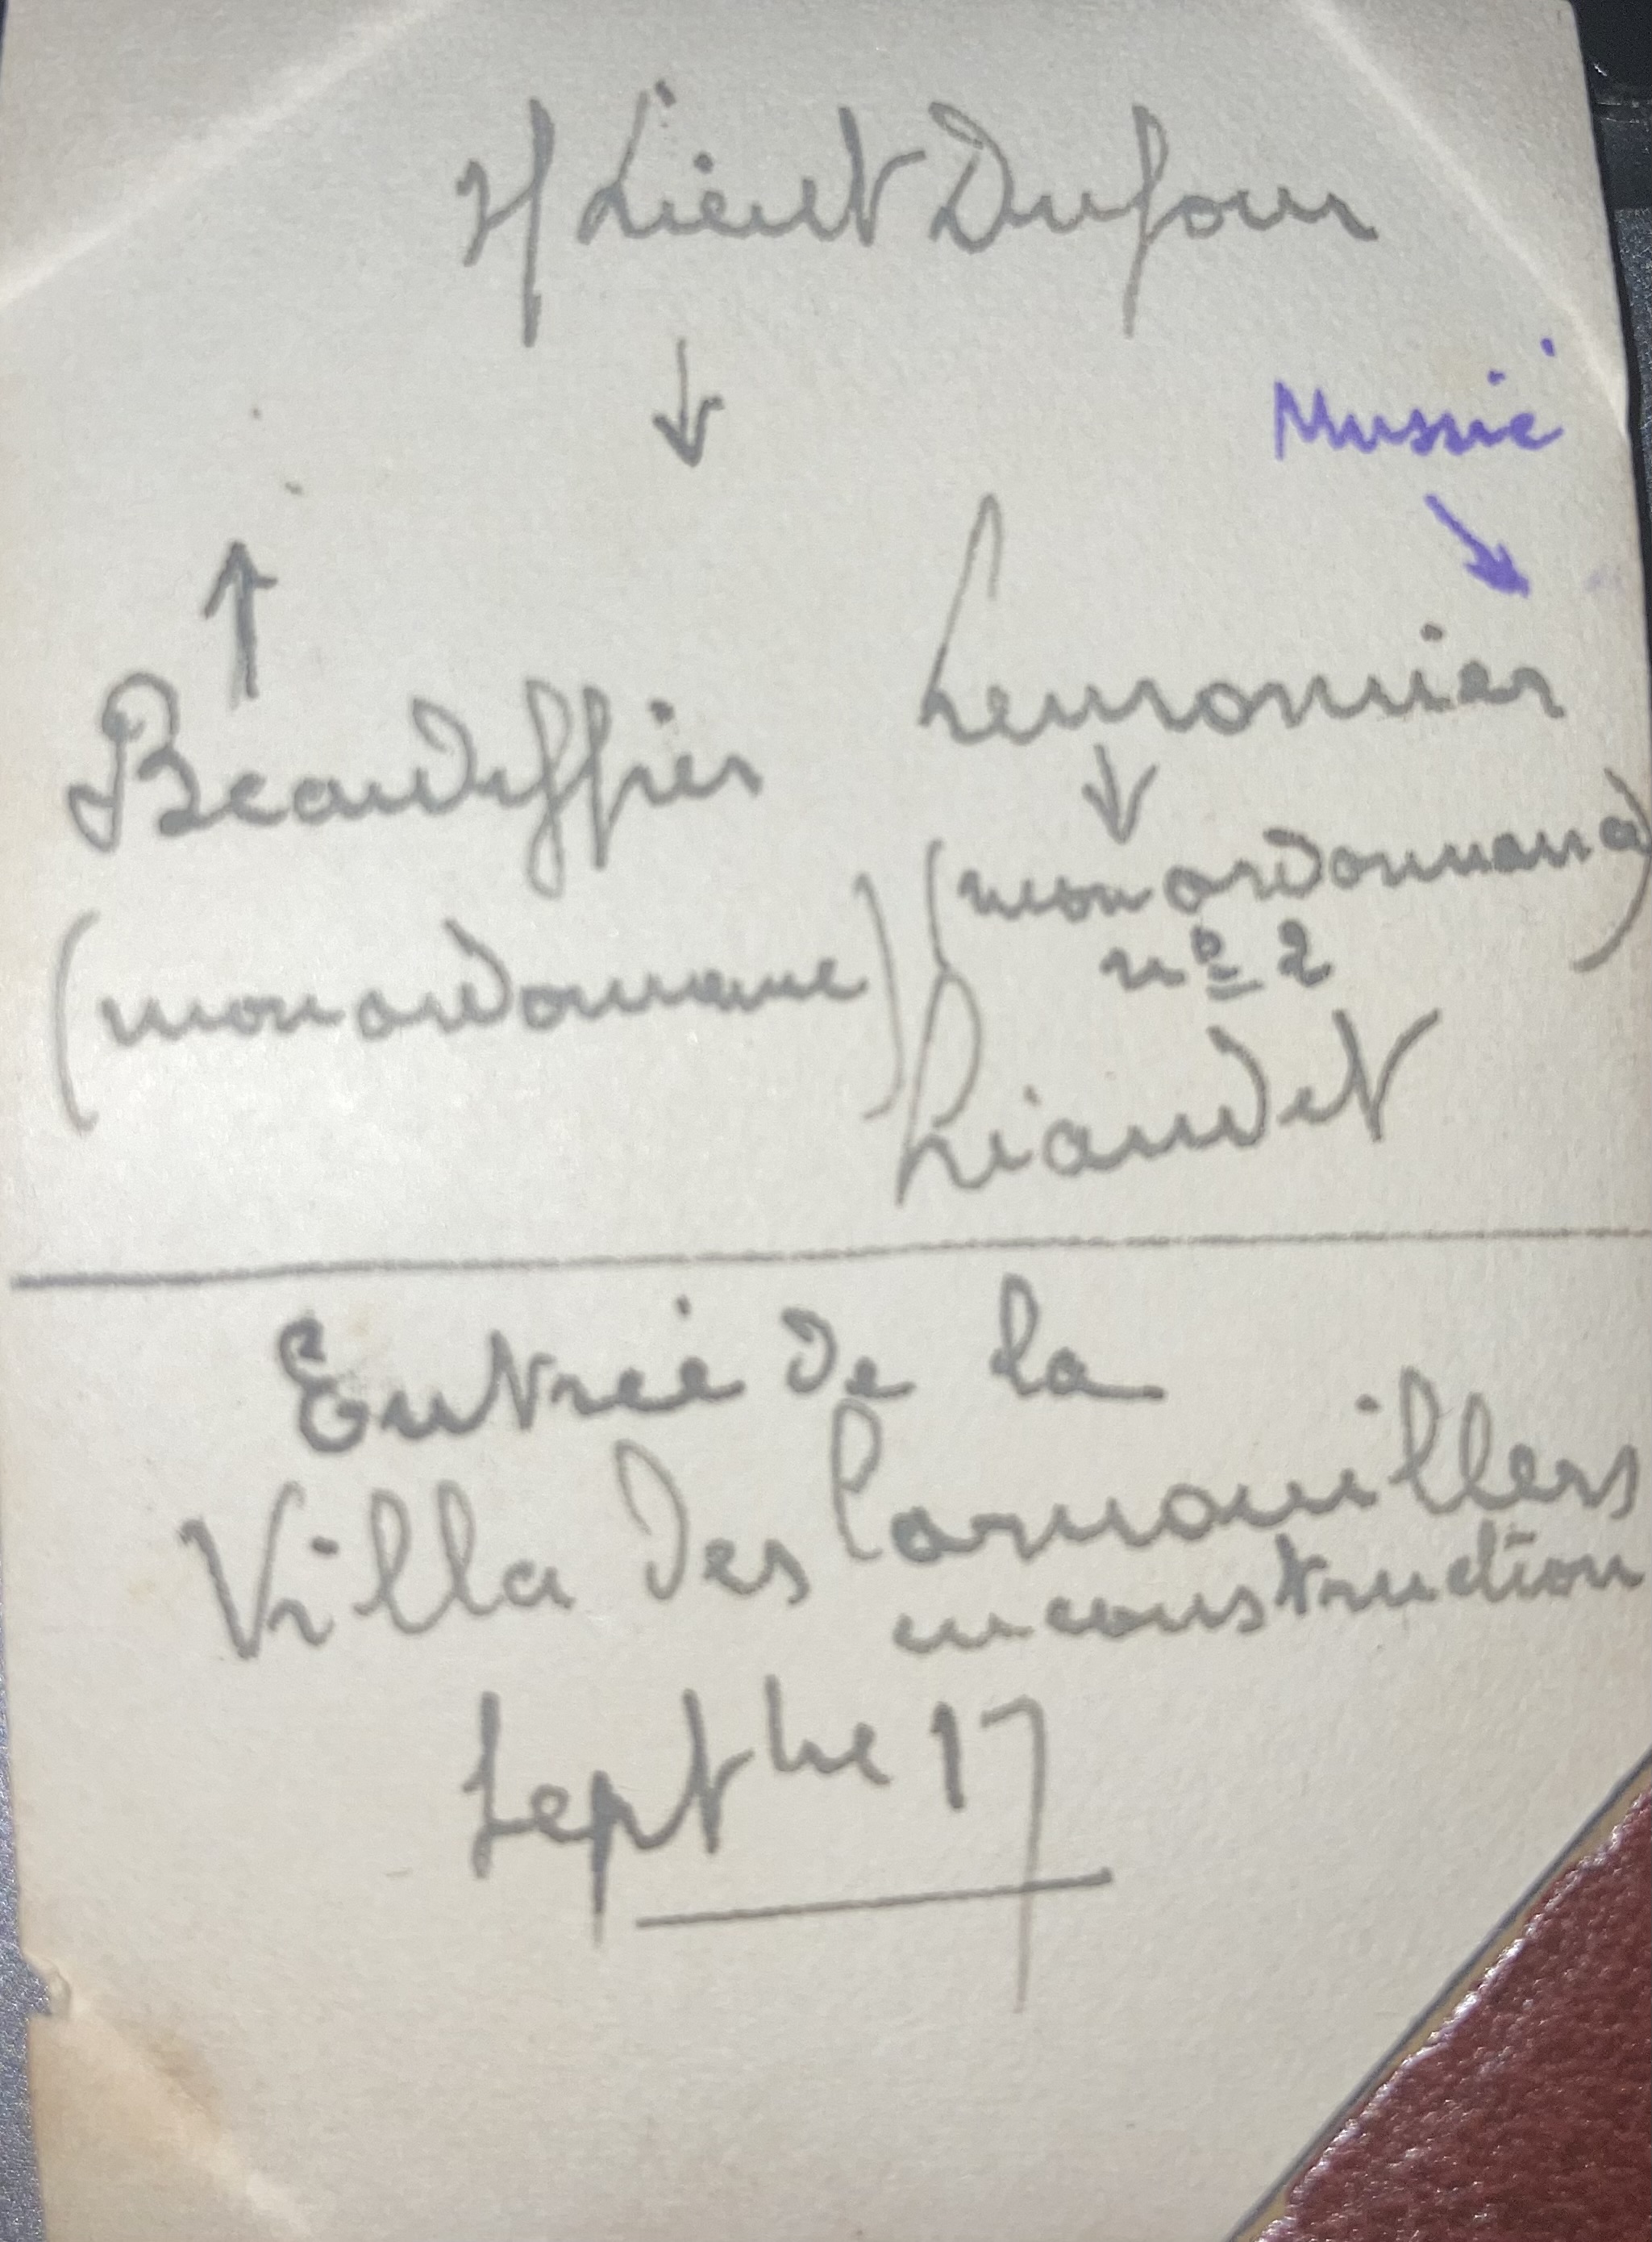 s/Lieut Dufour
↓
Mussié
↘
↑
Lemonnier
Beaudeffier
↓
(mon ordonnance)
nº 2
(mon ordonnance)
Liaudet
Entrée de la
Villa des Cornouillers
en construction
Septbre 17